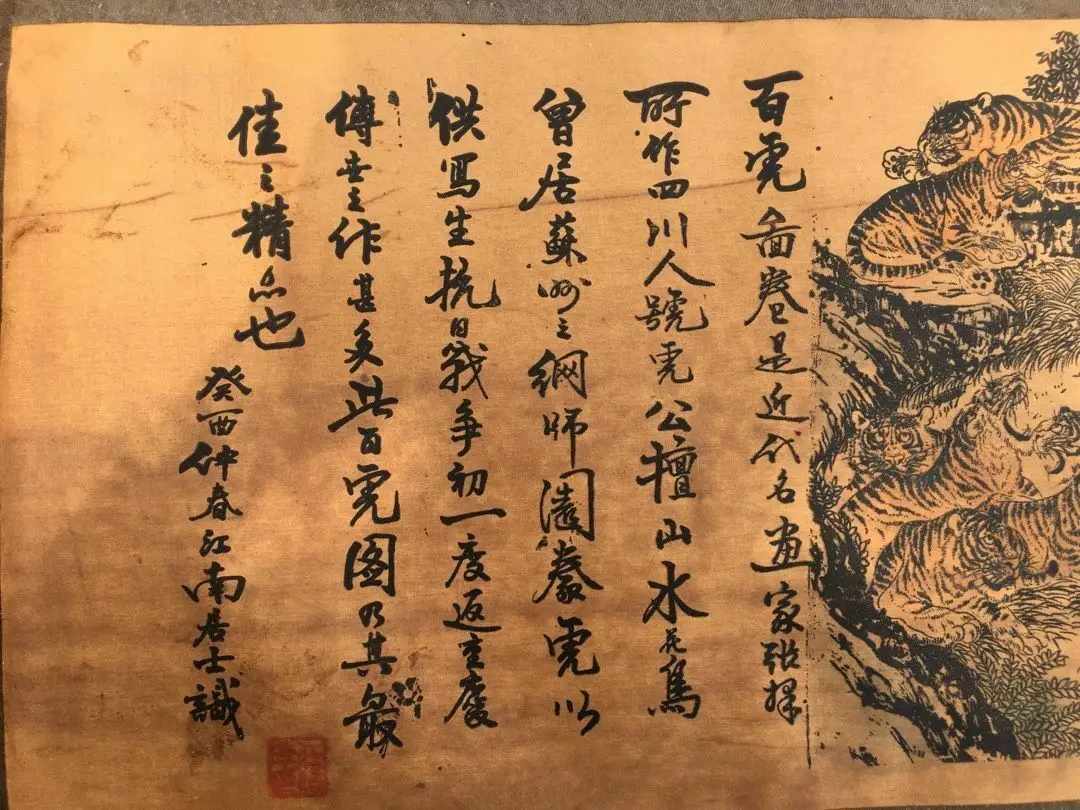 百虎啚卷是近代名畫家張擇
所作四川人號虎公擅山水花鳥
曾居蘇州之網師園養虎以
供寫生抗日戰争初一度返重慶
傳世之作甚多此百虎图乃其最
佳之精品也
癸酉仲春江南居士識